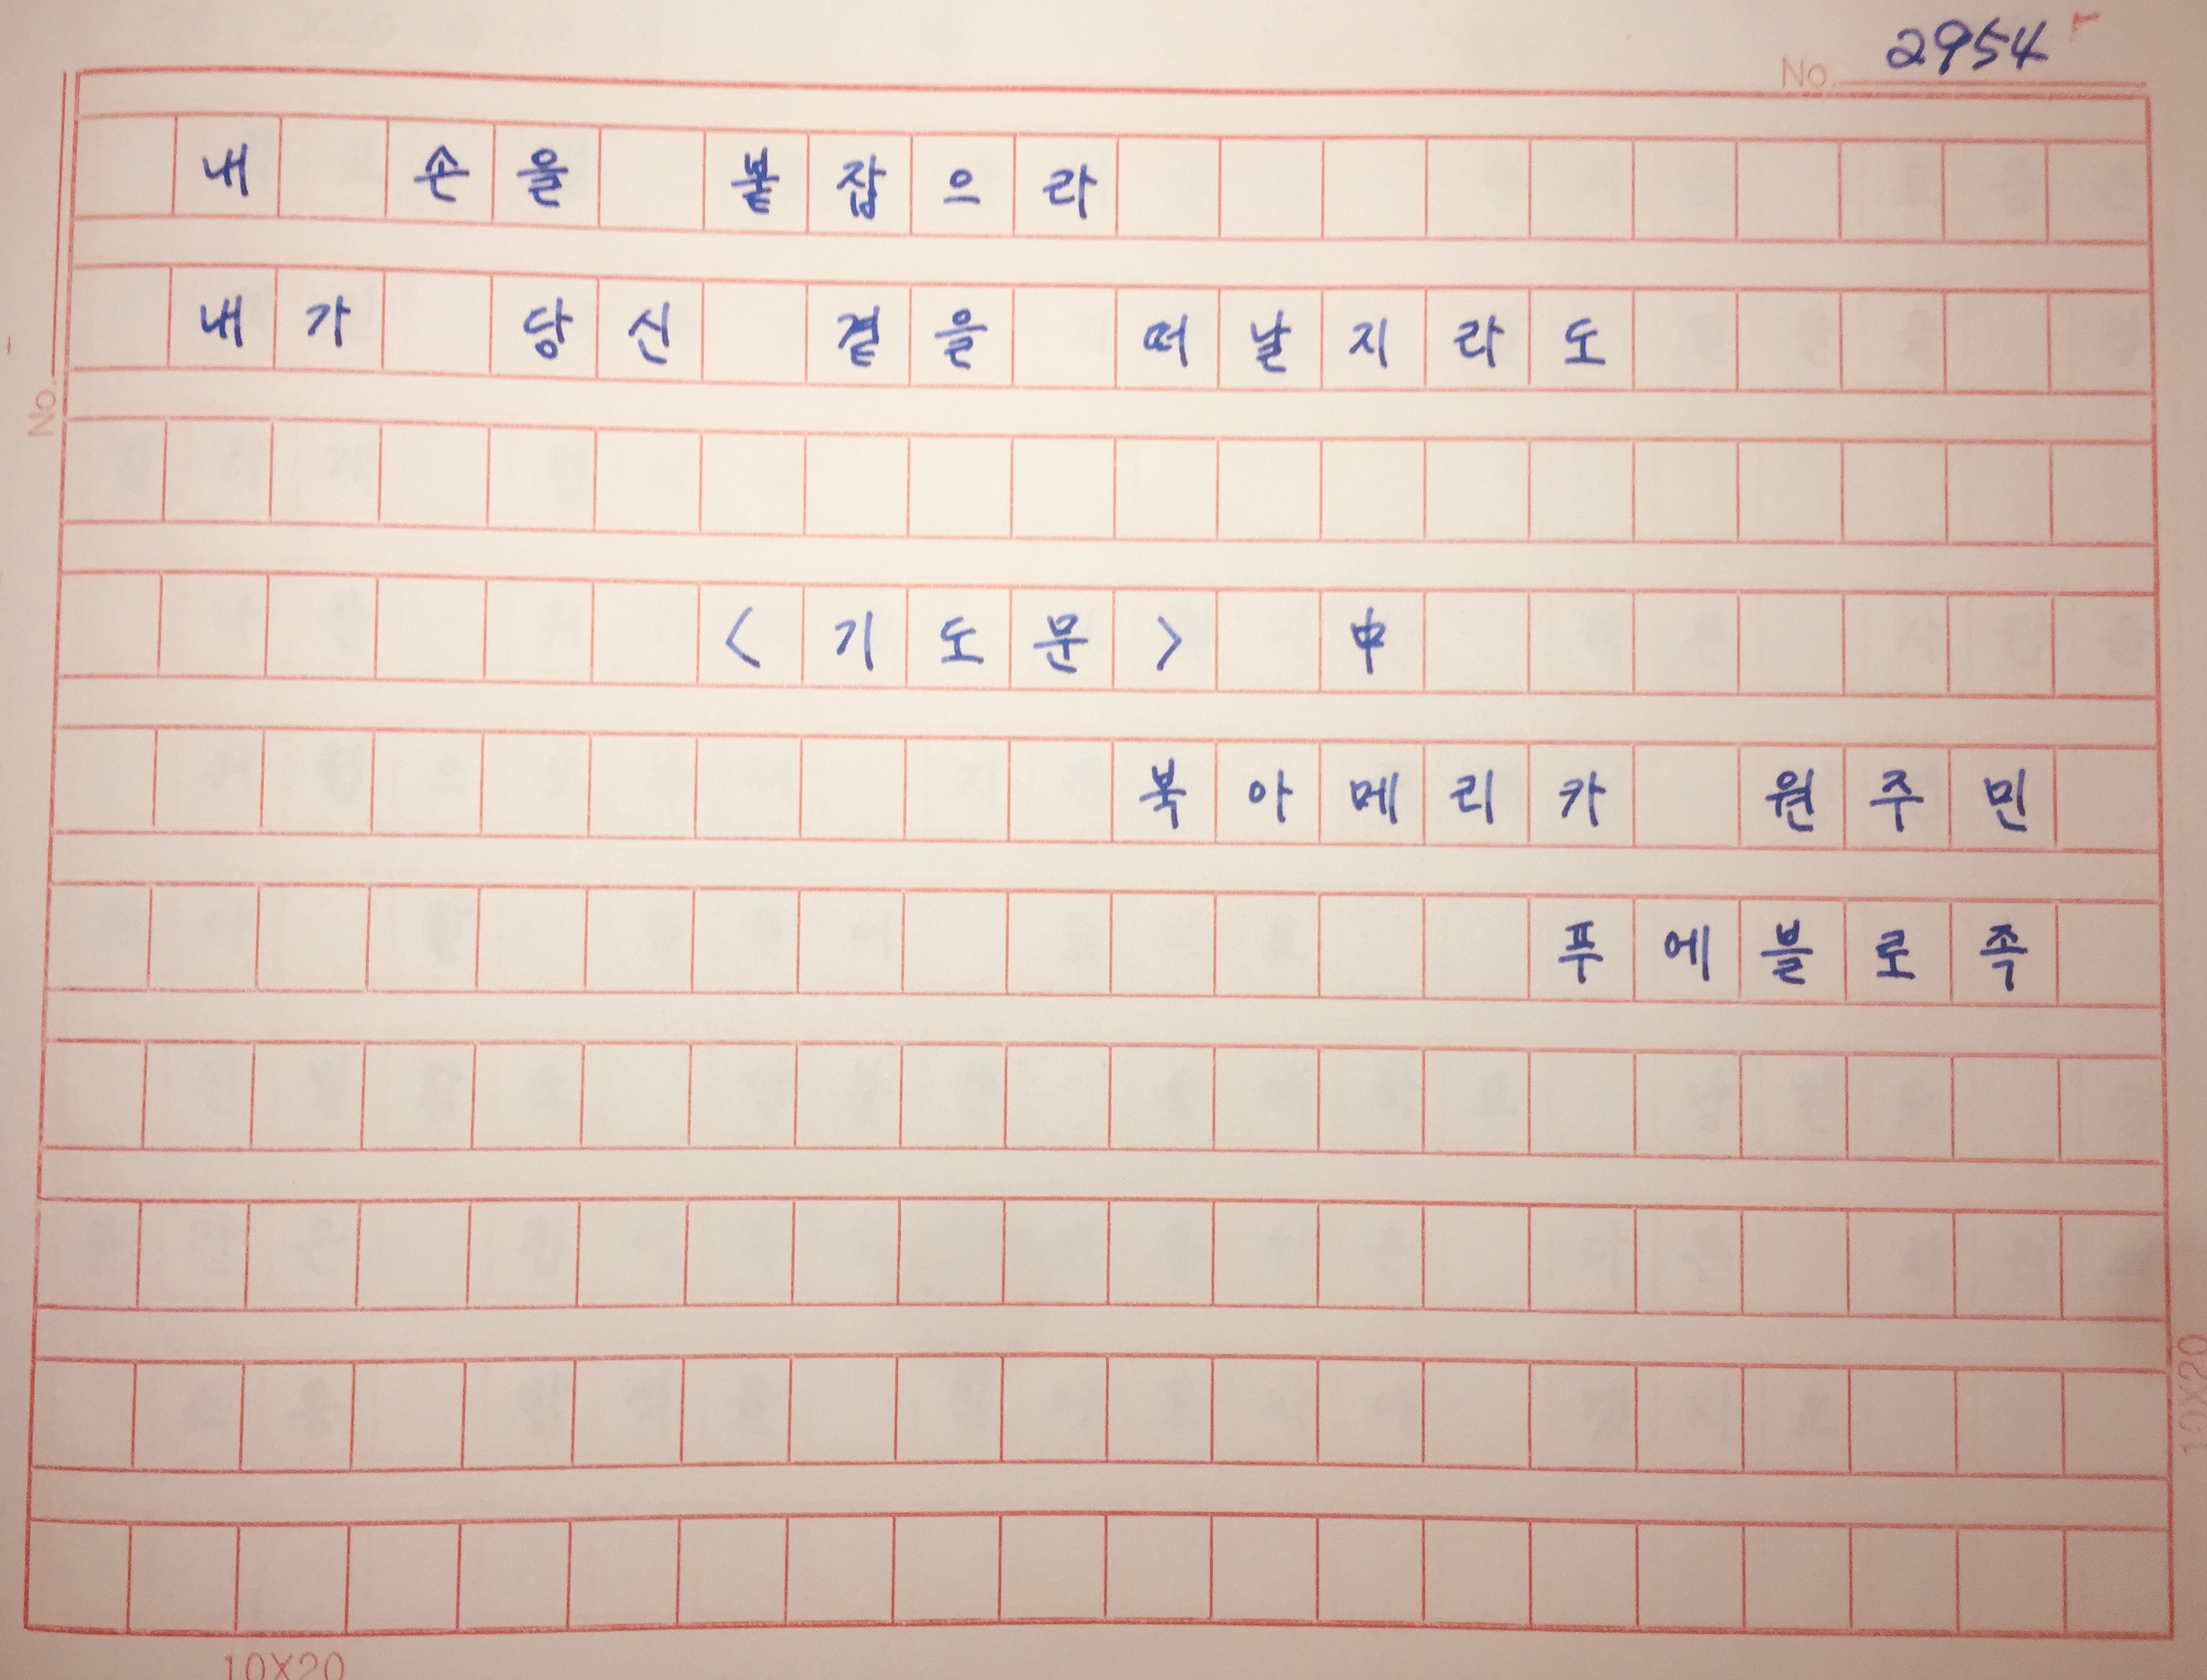 No. 2954
내 손을 붙잡으라
내가 당신 곁을 떠날지라도
No.
<기도문> 中
북아메리카 원주민
푸에블로족
10X20
10X20